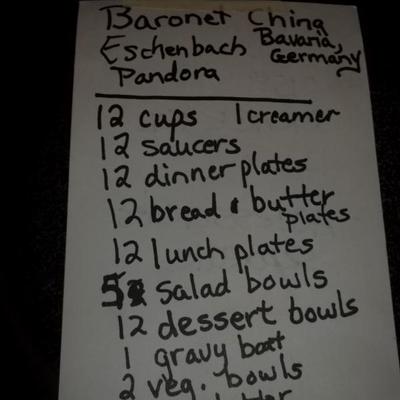 Baronet China
Eschenbach Bavaria, Germany
Pandora
12 cups 1 creamer
12 saucers
12 dinner plates
12 bread & butter plates
12 lunch plates
5 salad bowls
12 dessert bowls
1 gravy boat
2 veg. bowls